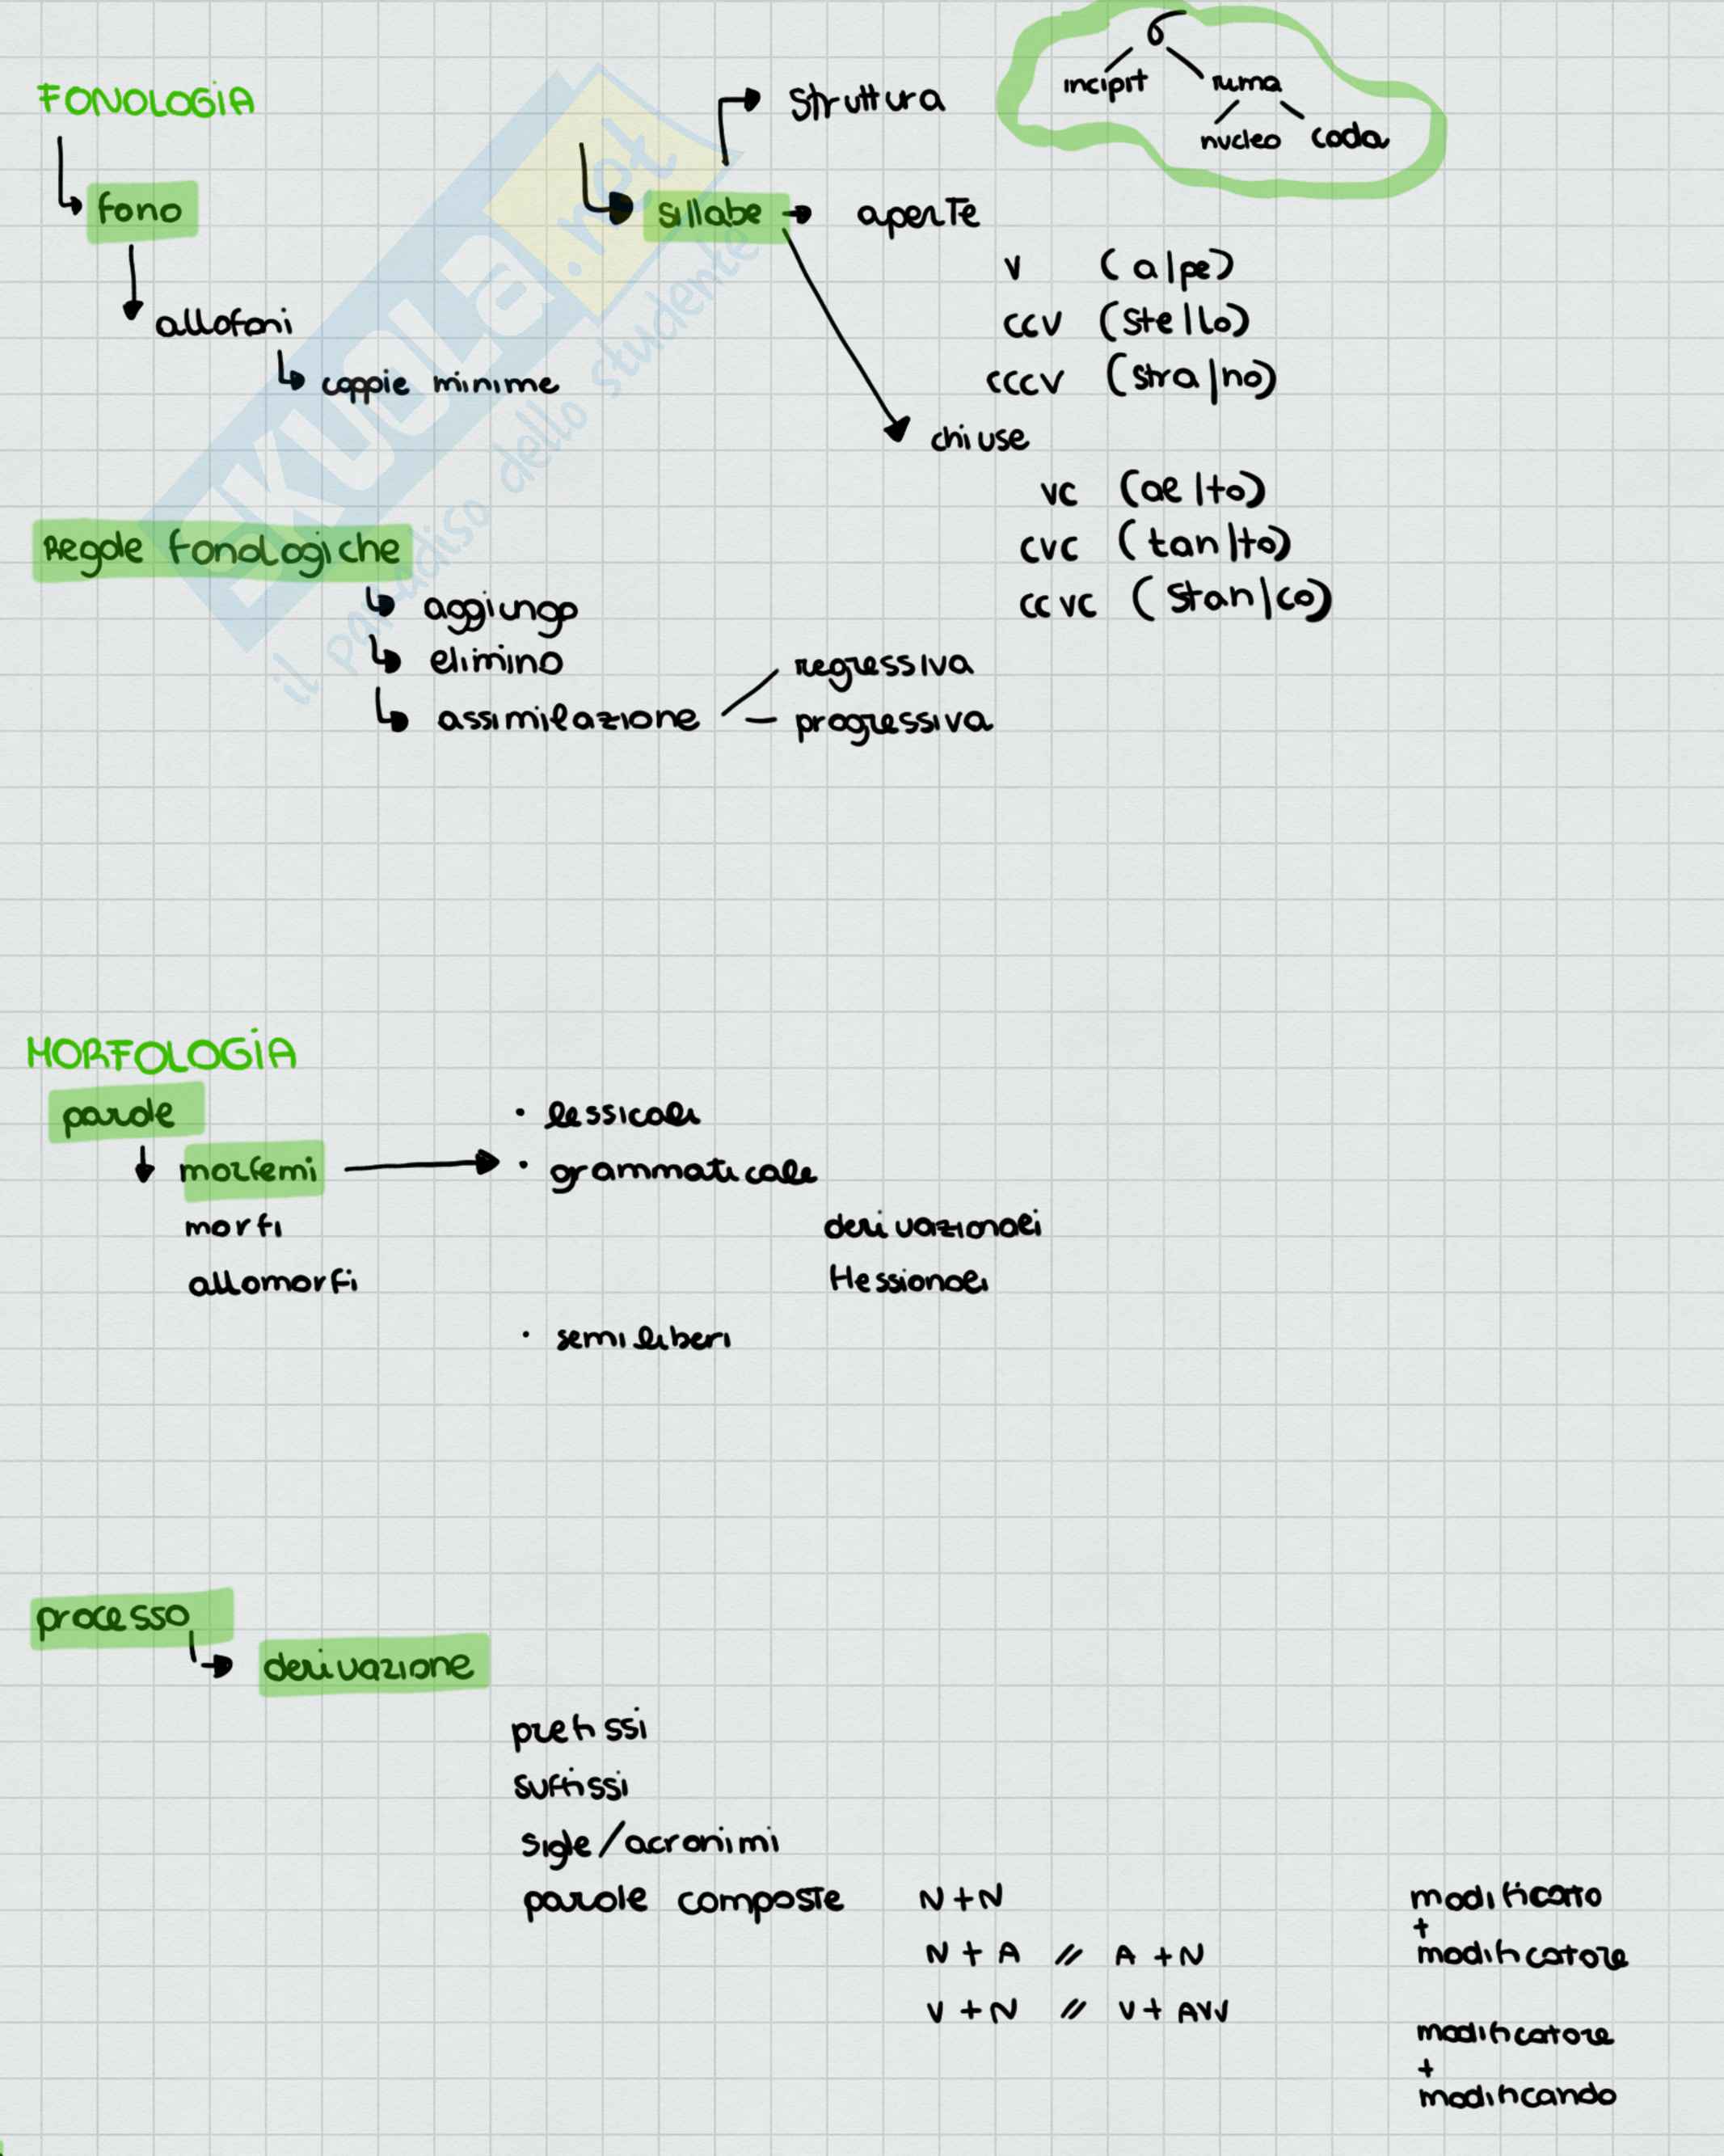 FONOLOGIA
fono
allofoni
coppie minime
sillabe
struttura
σ
incipit rima
nucleo coda
aperte
V (a|pe)
CCV (ste|lo)
CCCV (stra|no)
chiuse
VC (al|to)
CVC (tan|to)
CCVC (stan|co)
Regole fonologiche
aggiungo
elimino
assimilazione
regressiva
progressiva
SKUOLA.net
il paradiso dello studente
MORFOLOGIA
parole
morfemi
morfi
allomorfi
• lessicali
• grammaticale
derivazionali
flessionali
• semiliberi
processo
derivazione
prefissi
suffissi
sigle/acronimi
parole composte N+N
N + A // A + N
V + N // V + AVV
modificato
+
modificatore
modificatore
+
modificando